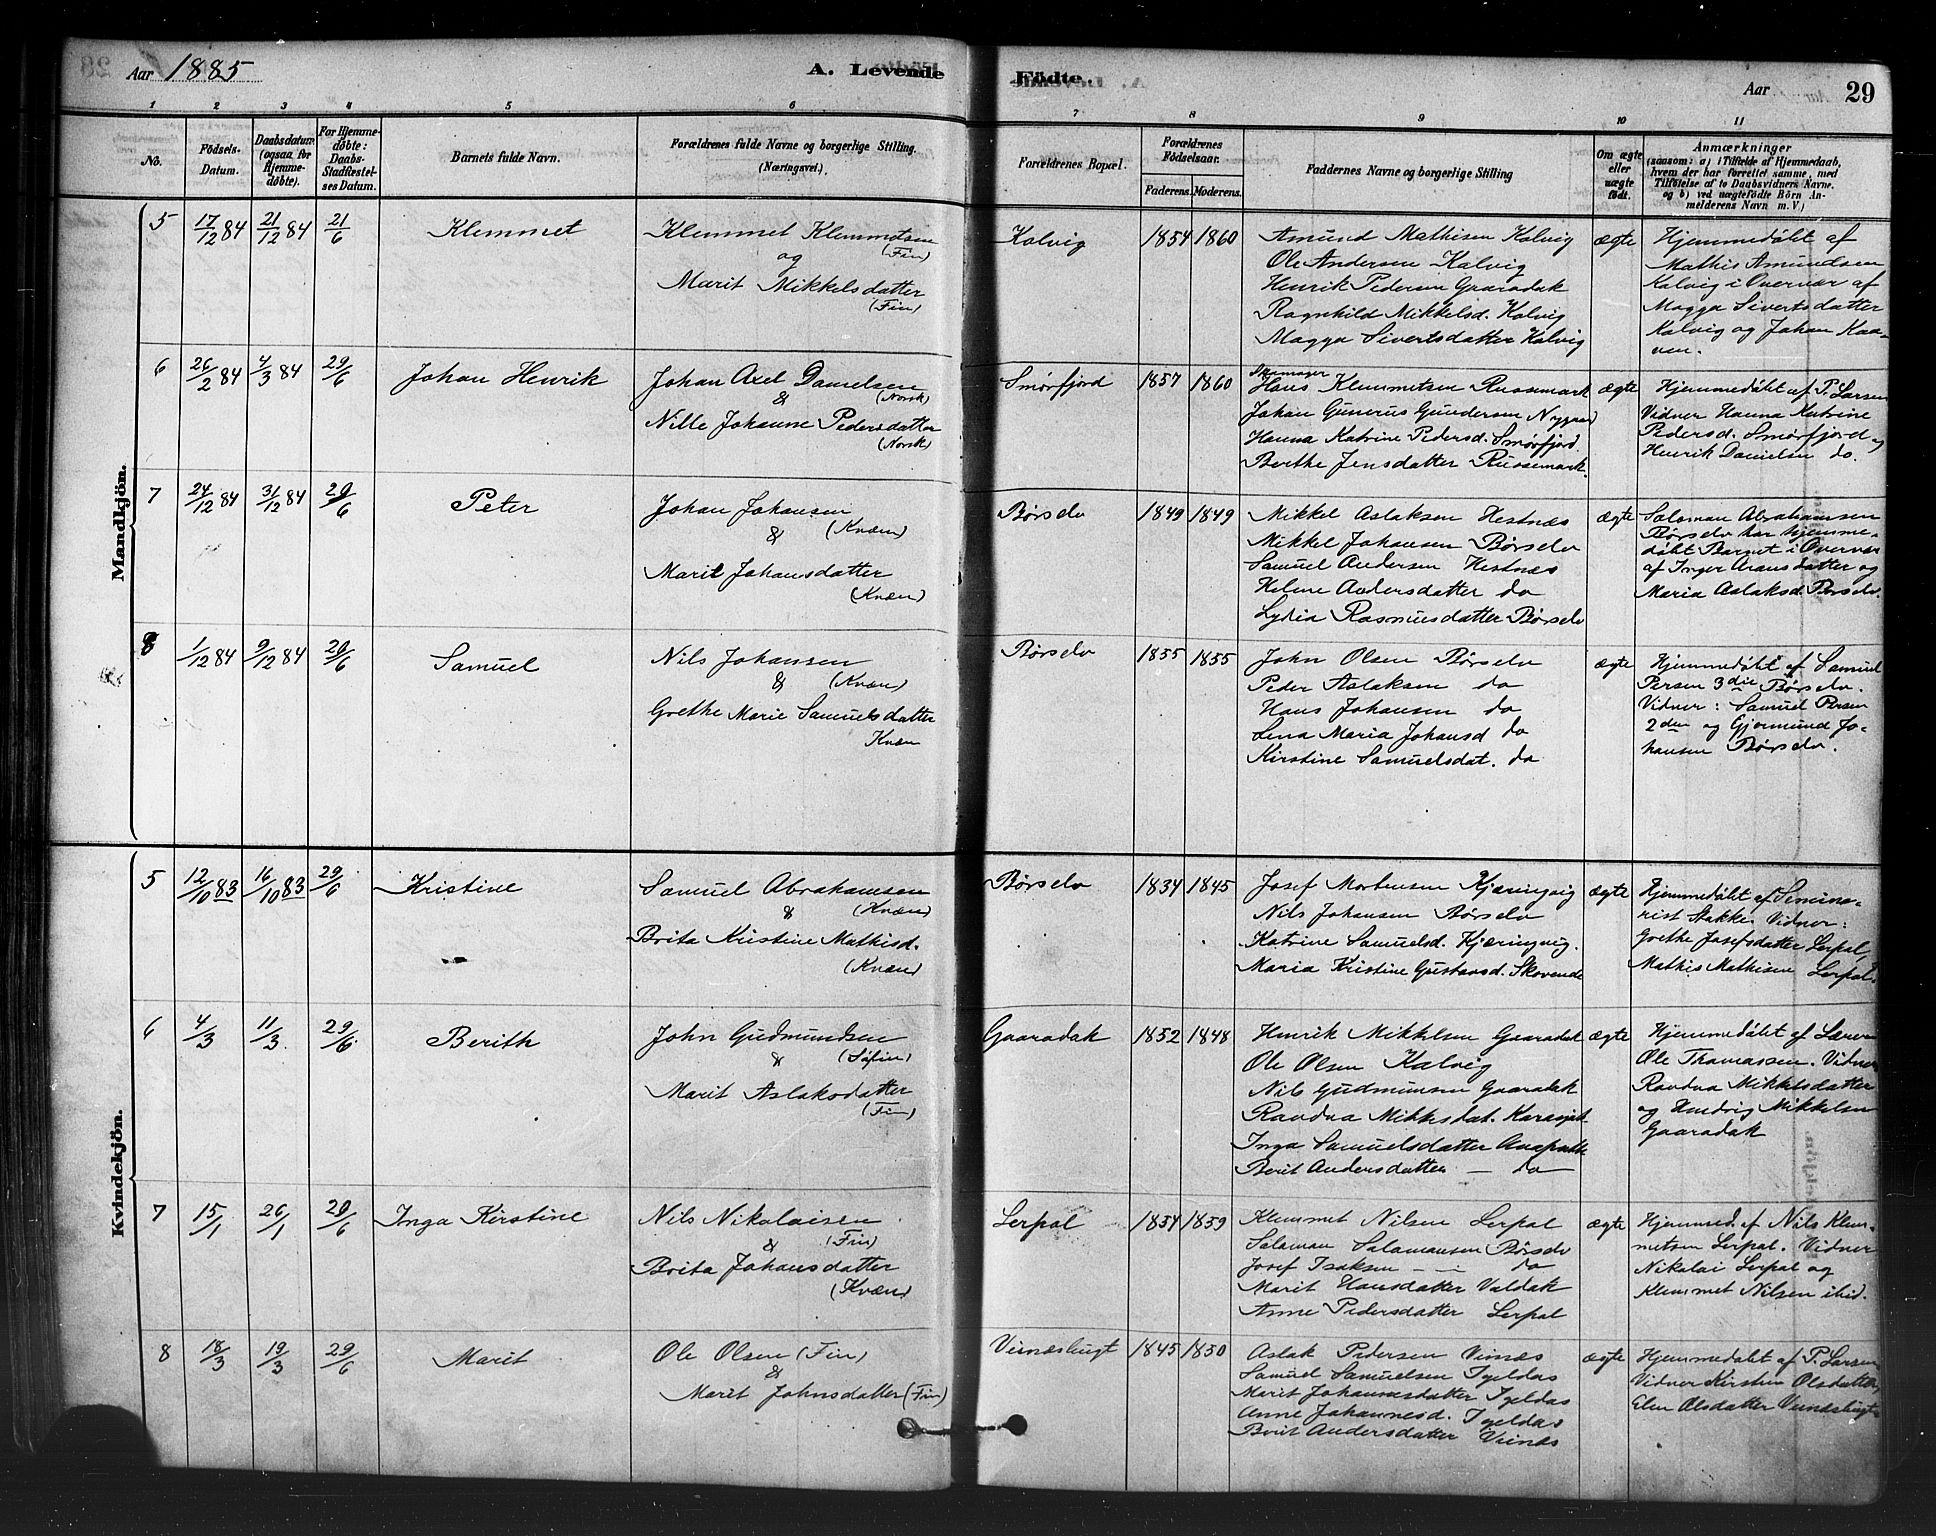 Aar 1885
A. Levende
Födte.
Aar
29
1 2 3 4 5 6 7 8 9 10 11
No.
Fødsels-
Datum.
Daabsdatum.
(ogsaa for
Hjemme-
døbte).
For Hjemme-
døbte:
Daabs-
Stadfæstel-
ses Datum.
Barnets fulde Navn.
Forældrenes fulde Navne og borgerlige Stilling.
(Næringsvei.)
Forældrenes Bopæl.
Forældrenes
Fødselsaar.
Faderens. Moderens.
Faddernes Navne og borgerlige Stilling
Om ægte
eller
uægte
født.
Anmærkninger
(saasom: a) i Tilfælde af Hjemmedaab,
hvem der har forrettet samme, med
Tilføielse af to Daabsvidners Navne.
og b) ved uægtefödte Börn An-
melderens Navn m. V.)
Mandkjön.
5 17/12 84 21/12 84 21/6 Klemmet
Klemmet Klemmetsen
(Fin)
og
Marit Mikkelsdatter
(Fin)
Kolvig 1854 1860
Amund Mathisen Kolvig
Ole Andersen Kalvig
Henrik Pedersen Gaaradak
Ragnhild Mikkelsd. Kolvig
Magga Sivertsdatter Kolvig
ægte
Hjemmedøbt af
Mathis Amundsen
Kolvig i Overvær af
Magga Sivertsdatter
Kolvig og Johan Kaa-
ven.
6 26/2 84 4/3 84 29/6 Johan Henrik
Johan Axel Danielsen
& (Norsk)
Nille Johanne Pedersdatter
(Norsk)
Smørfjord 1857 1860
Hans Klemmetsen Russemark
Johan Gunerus Gundersen Nygaard
Hanna Katrine Pedersd. Smørfjord.
Berthe Jensdatter Russemark.
ægte
Hjemmedøbt af P. Larsen
Vidner Hanna Katrine
Pedersd. Smørfjord og
Henrik Danielsen do.
7 24/12 84 31/12 84 20/6 Peter
Johan Johansen
& (Kvæn)
Marit Johansdatter
(Kvæn)
Børselv 1849 1849
Mikkel Aslaksen Hestnæs
Mikkel Johansen Børselv
Samuel Andersen Hestnæs
Helene Andersdatter do
Lydia Rasmusdatter Børselv
ægte
Salomon Abrahamsen
Børselv har hjemme-
døbt Barnet i Overvær
af Inger Aransdatter og
Maria Aslaksd. Børselv.
8 1/12 84 9/12 84 20/6 Samuel
Nils Johansen
& (Kvæn)
Grethe Marie Samuelsdatter
Kvæn
Børselv 1855 1855
John Olsen Børselv
Peder Aslaksen do
Hans Johansen do
Lena Maria Johansd do
Kirstine Samuelsdat. do
ægte
Hjemmedøbt af Samuel
Persen 3die Børselv.
Vidner: Samuel Persen
2den og Gjermund Jo-
hansen Børselv.
Kvindekjön.
5 12/10 83 16/10 83 29/6 Kristine
Samuel Abrahamsen
& (Kvæn)
Brita Kristine Mathisd.
(Kvæn)
Børselv 1834 1845
Josef Mortensen Kjæringvig
Nils Johansen Børselv
Katrine Samuelsd. Kjæringvig.
Maria Kristine Gustavsd. Skovende
ægte
Hjemmedøbt af Semina-
rist Stakke. Vidner:
Grethe Josefsdatter Lerpal,
Mathis Mathisen Lerpal.
6 4/3 11/3 29/6. Berith
John Gudmundsen
& (Søfin)
Marit Aslaksdatter
(Fin)
Gaaradak 1852 1848
Henrik Mikkelsen Gaaradak
Ole Olsen Kalvig
Nils Gudmunsen Gaaradak
Ravdna Mikkelsdat. Karasjok
Inga Samuelsdatter
Berit Andersdatter — do
ægte
Hjemmedøbt af Lærer
Ole Thomassen. Vidner
Ravdna Mikkelsdatter
og Hendrig Mikkelsen
Gaaradak
7 15/1 26/1 20/6 Inga Kirstine
Nils Nikolaisen
& (Fin)
Brita Johansdatter
(Kvæn)
Lerpal 1854 1859
Klemmet Nilsen Lerpal
Salamon Salamonsen Børselv
Josef Isaksen — do
Marit Hansdatter Valdak
Anne Pedersdatter Lerpal
ægte
Hjemmed. af Nils Klem-
metsen Lerpal. Vidner
Nikolai Lerpal og
Klemmet Nilsen ibid.
8 18/3 19/3 29/6 Marit
Ole Olsen (Fin)
&
Marit Johnsdatter (Fin)
Veinæsbugt 1845 1850
Aslak Pedersen Veinæs
Samuel Samuelsen Igeldas
Marit Johannesdatter Igeldas
Anne Johannesd. Igeldas
Berit Andersdatter Veinæs
ægte
Hjemmedøbt af P. Larsen
Vidner Kirsten Olsdatter,
Elen Olsdatter Veinæsbugt